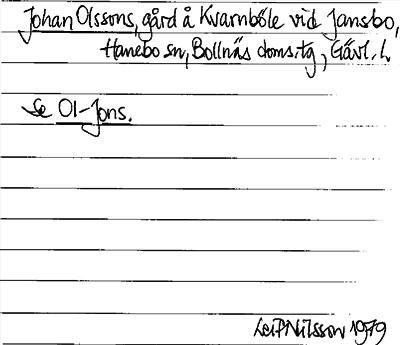 Johan Olssons, gård å Kvarnböle vid Jansbo,
Hanebo sn, Bollnäs doms.tg, Gävl. l.
Se Ol-Jons.
Leif Nilsson 1979